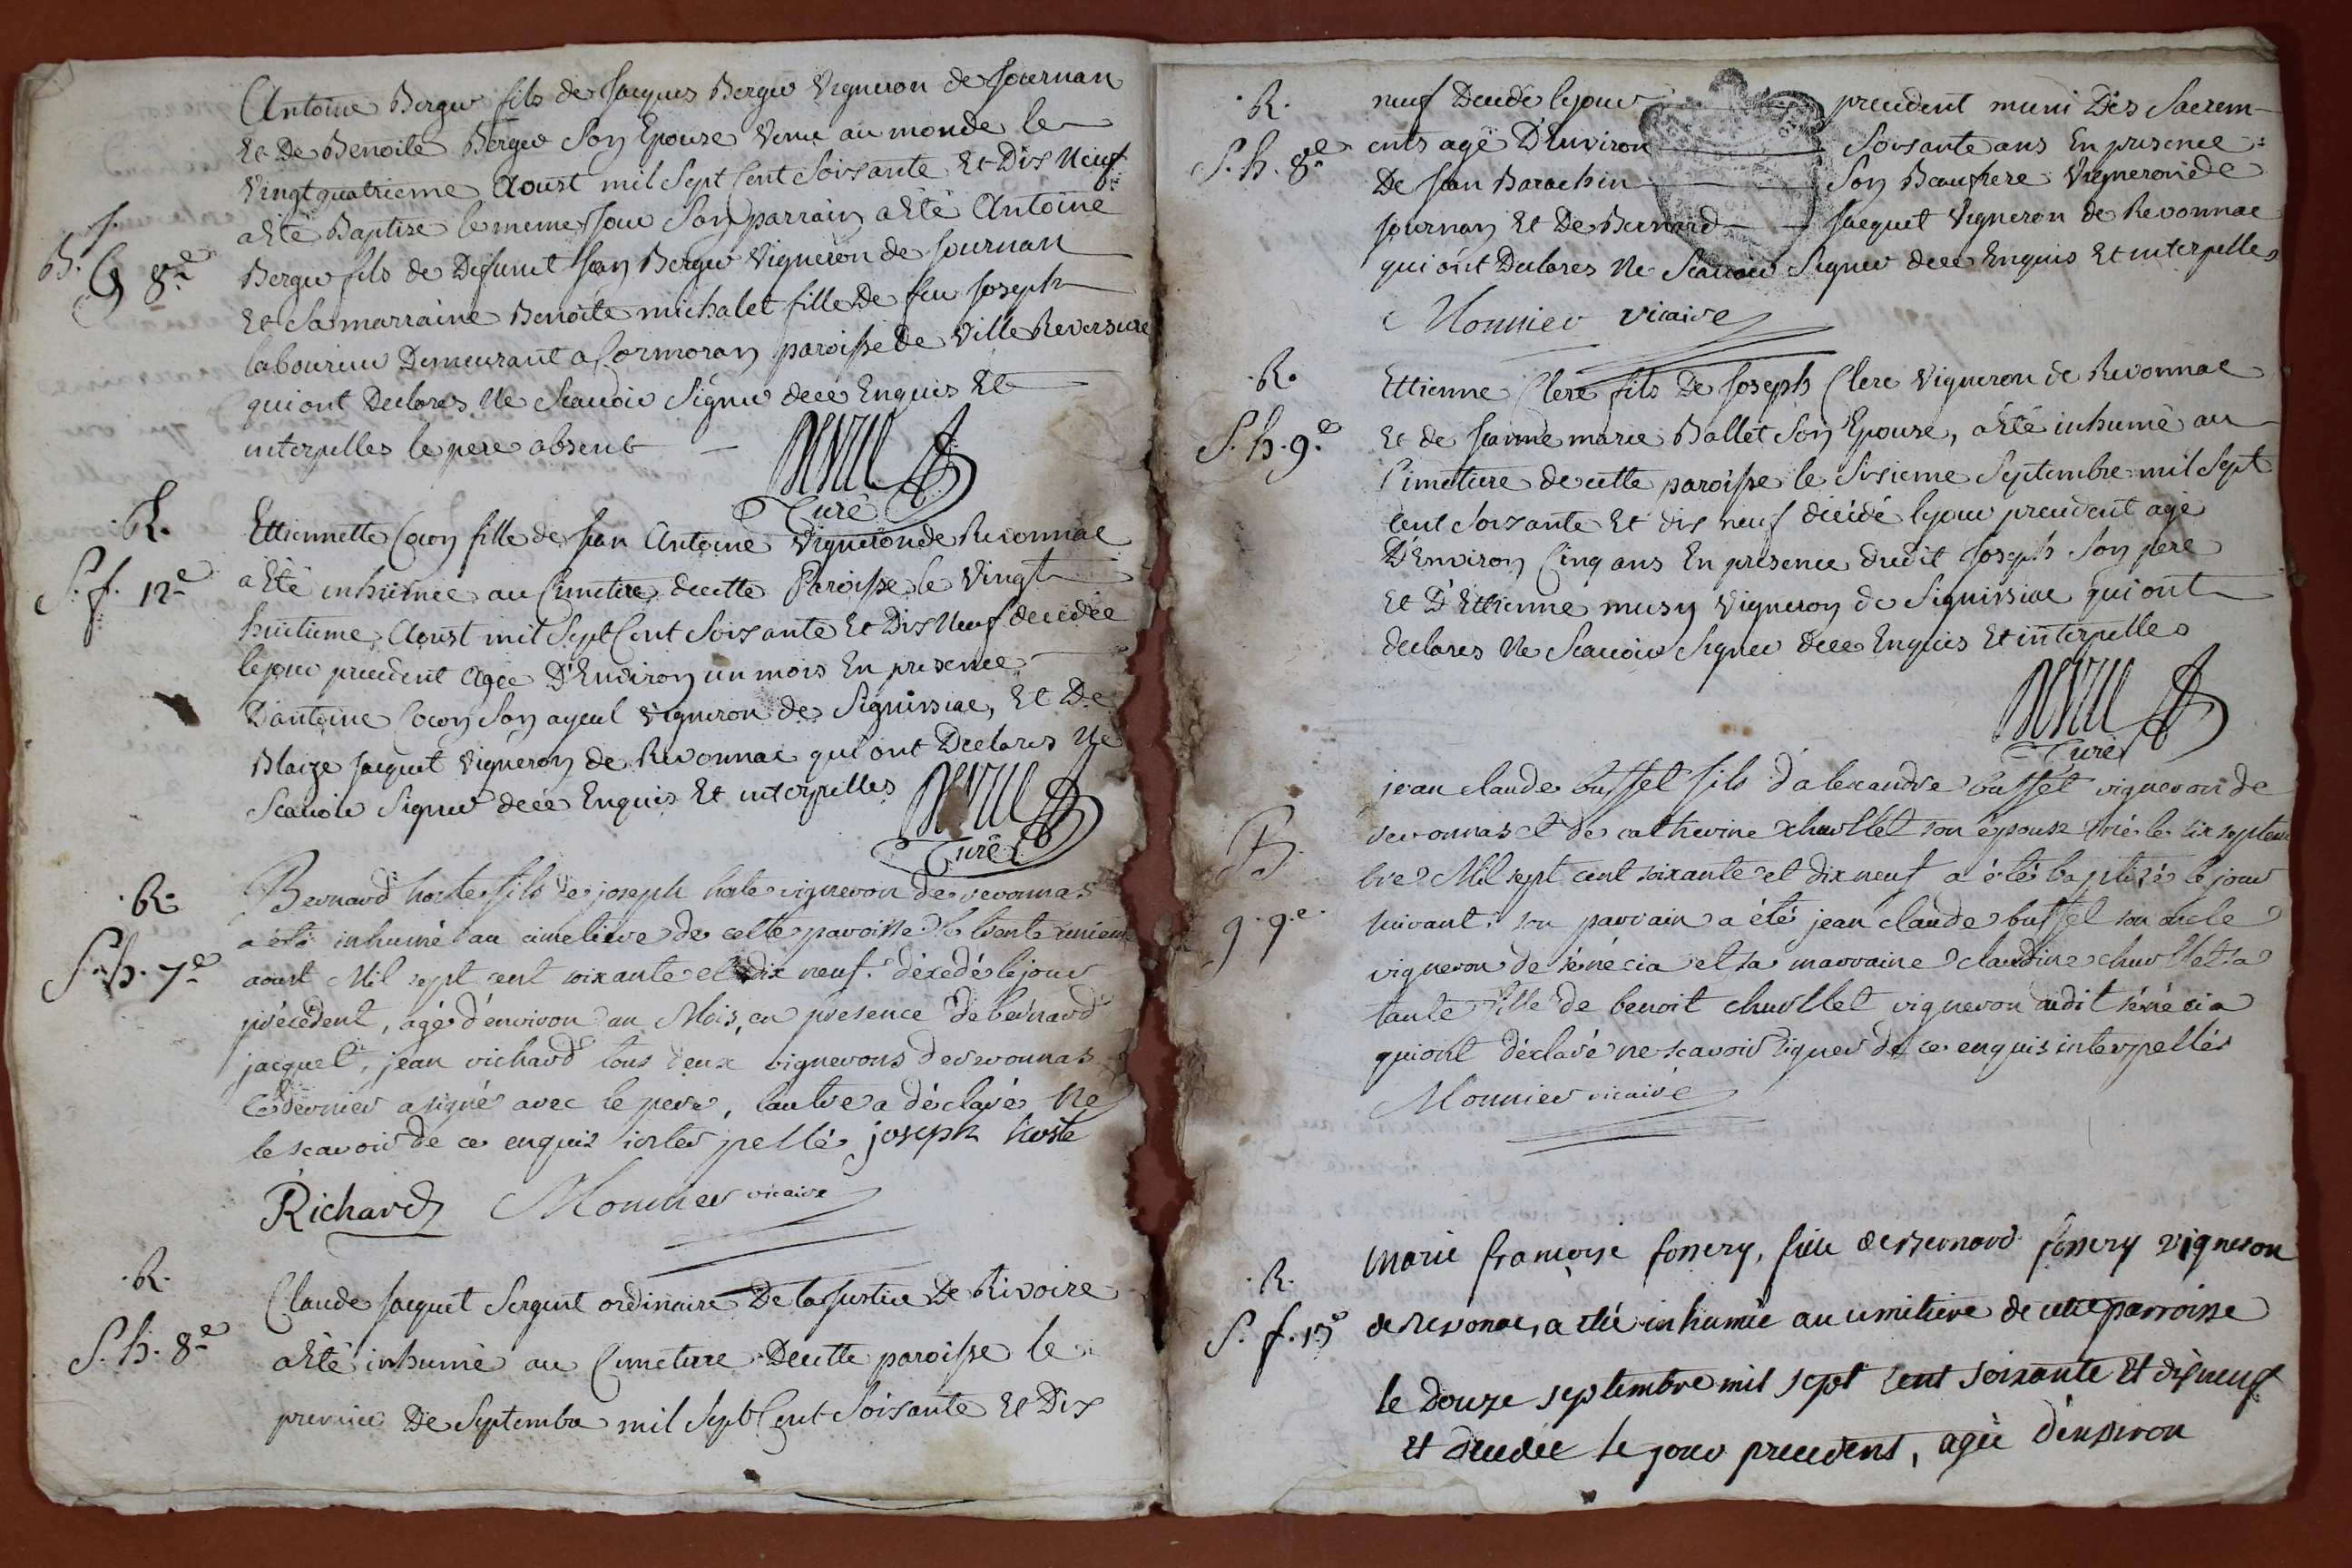 Antoine Berger fils de Jacques Berger Vigneron de Journan
Et De Benoite Berger Son Epouze Venu au monde le
Vingtquatrieme Aoust mil Sept Cent Soixante Et Dix Neuf
a Eté Baptize le meme Jour Son parrain a Eté Antoine
J.
B. G 8.e
Berger fils de Defunt Jean Berger Vigneron de Journan
Et Sa marraine Benoite michalet fille De feu Joseph
laboureur Demeurant a Cormoran paroisse de Ville Reversure
qui ont Declares Ne Scavoir Signer dece Enquis Et
interpelles le pere absent
Curé
.R.
S. f. 12.e
Ettiennette Cocon fille de Jean Antoine Vigneron de Revonnac
a Eté inhumée au Cimetiere decette Paroisse le Vingt
huitieme Aoust mil Sept Cent Soixante Et Dix Neuf decedée
lejour precedent Agée D'Environ un mois En presence
D'antoine Cocon Son ayeul Vigneron de Signissiac, Et De
Blaize Jacquet Vigneron de Revonnac qui ont Declares Ne
Scavoir Signer dece Enquis Et interpelles
Curé
.R.
S. h. 7.e
Bernard hoste fils de joseph hoste vigneron de revonnas
a été inhumé au cimetiere de cette paroisse le trente unieme
aoust Mil sept cent soixante et dix neuf. décédé lejour
précédent, agé d'environ un Mois, en presence de bernard
jacquet, jean richard tous deux vignerons de revonnas
ce dernier a signé avec le pere, l'autre a déclaré Ne
le scavoir de ce enquis interpellé joseph hoste
Richard Monnier vicaire
.R.
S. h. 8.e
Claude Jacquet Sergent ordinaire De la Justice De Rivoire
a Eté inhumé au Cimetiere Decette paroisse le
premier De Septembre mil Sept Cent Soixante Et Dix
.R.
S. h. 8.e
neuf Decedé lejour precedent muni Des Sacrem
ents agé D'Environ Soixante ans En presence
De Jean Barachin Son Beaufrere Vigneron de
Journan Et De Bernard Jacquet Vigneron de Revonnac
qui ont Declares Ne Scavoir Signer dece Enquis Et interpelles
Monnier vicaire
.R.
S. h. 9.e
Ettienne Clerc fils De Joseph Clerc Vigneron de Revonnac
Et de Jeanne marie Ballet Son Epouze, a Eté inhumé au
Cimetiere decette paroisse le Sixieme Septembre mil Sept
Cent Soixante Et dix neuf décédé lejour precedent agé
D'Environ Cinq ans En presence dudit Joseph Son pere
Et D'Ettienne musy Vigneron de Signissiac qui ont
declares Ne Scavoir Signer dece Enquis Et interpelles
Curé
B.
g. 9.e
jean claude buffet fils d'alexandre buffet vigneron de
revonnas et de catherine chuvllet son épouse né le six septem
bre Mil sept cent soixante et dix neuf a été baptisé le jour
suivant. son parrain a été jean claude buffet son oncle
vigneron de sénécia et sa marraine claudine chuvllet sa
tante fille de benoit chuvllet vigneron audit sénécia
qui ont déclaré ne scavoir signer de ce enquis interpellés
Monnier vicaire
.R.
S. f. 13.e
Marie françoise fossery, fille de Bernard fossery vigneron
de Revonac, a été inhumée au cimitiere de cette parroisse
le Douze septembre mil sept cent soixante et dix neuf
et decedée le jour precedent, agée d'environ